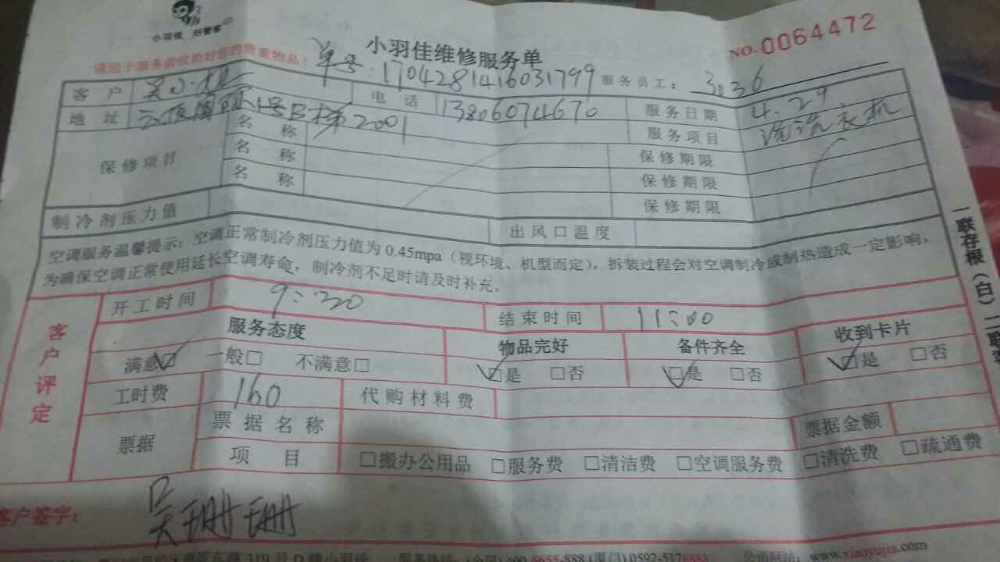 小羽佳 好管家
小羽佳维修服务单
NO.0064472
请您于服务前收拾好您的贵重物品:
单号:1704281416031799 服务员工: 3036
客户 吴小姐 电话 13806074670 服务日期 4.29
地址 1号B梯2001 服务项目 清洗洗衣机
保修项目
名称 保修期限
名称 保修期限
名称 保修期限
制冷剂压力值 出风口温度
空调服务温馨提示:空调正常制冷剂压力值为0.45mpa(视环境、机型而定),拆装过程会对空调制冷或制热造成一定影响,
为确保空调正常使用延长空调寿命,制冷剂不足时请及时补充.
客户评定
开工时间 9:20 结束时间 11:00
服务态度 物品完好 备件齐全 收到卡片
满意☑ 一般□ 不满意□ ☑是 □否 ☑是 □否 ☑是 □否
工时费 160 代购材料费
票据 票据名称 票据金额
项目 □搬办公用品 □服务费 □清洁费 □空调服务费 □清洗费 □疏通费
客户签字: 吴珊珊
一联存根(白)二联
319号 小羽佳 服务热线: (全国)400-6655-888 (厦门)0592-5178888 公司网站: www.xiaoyujia.com